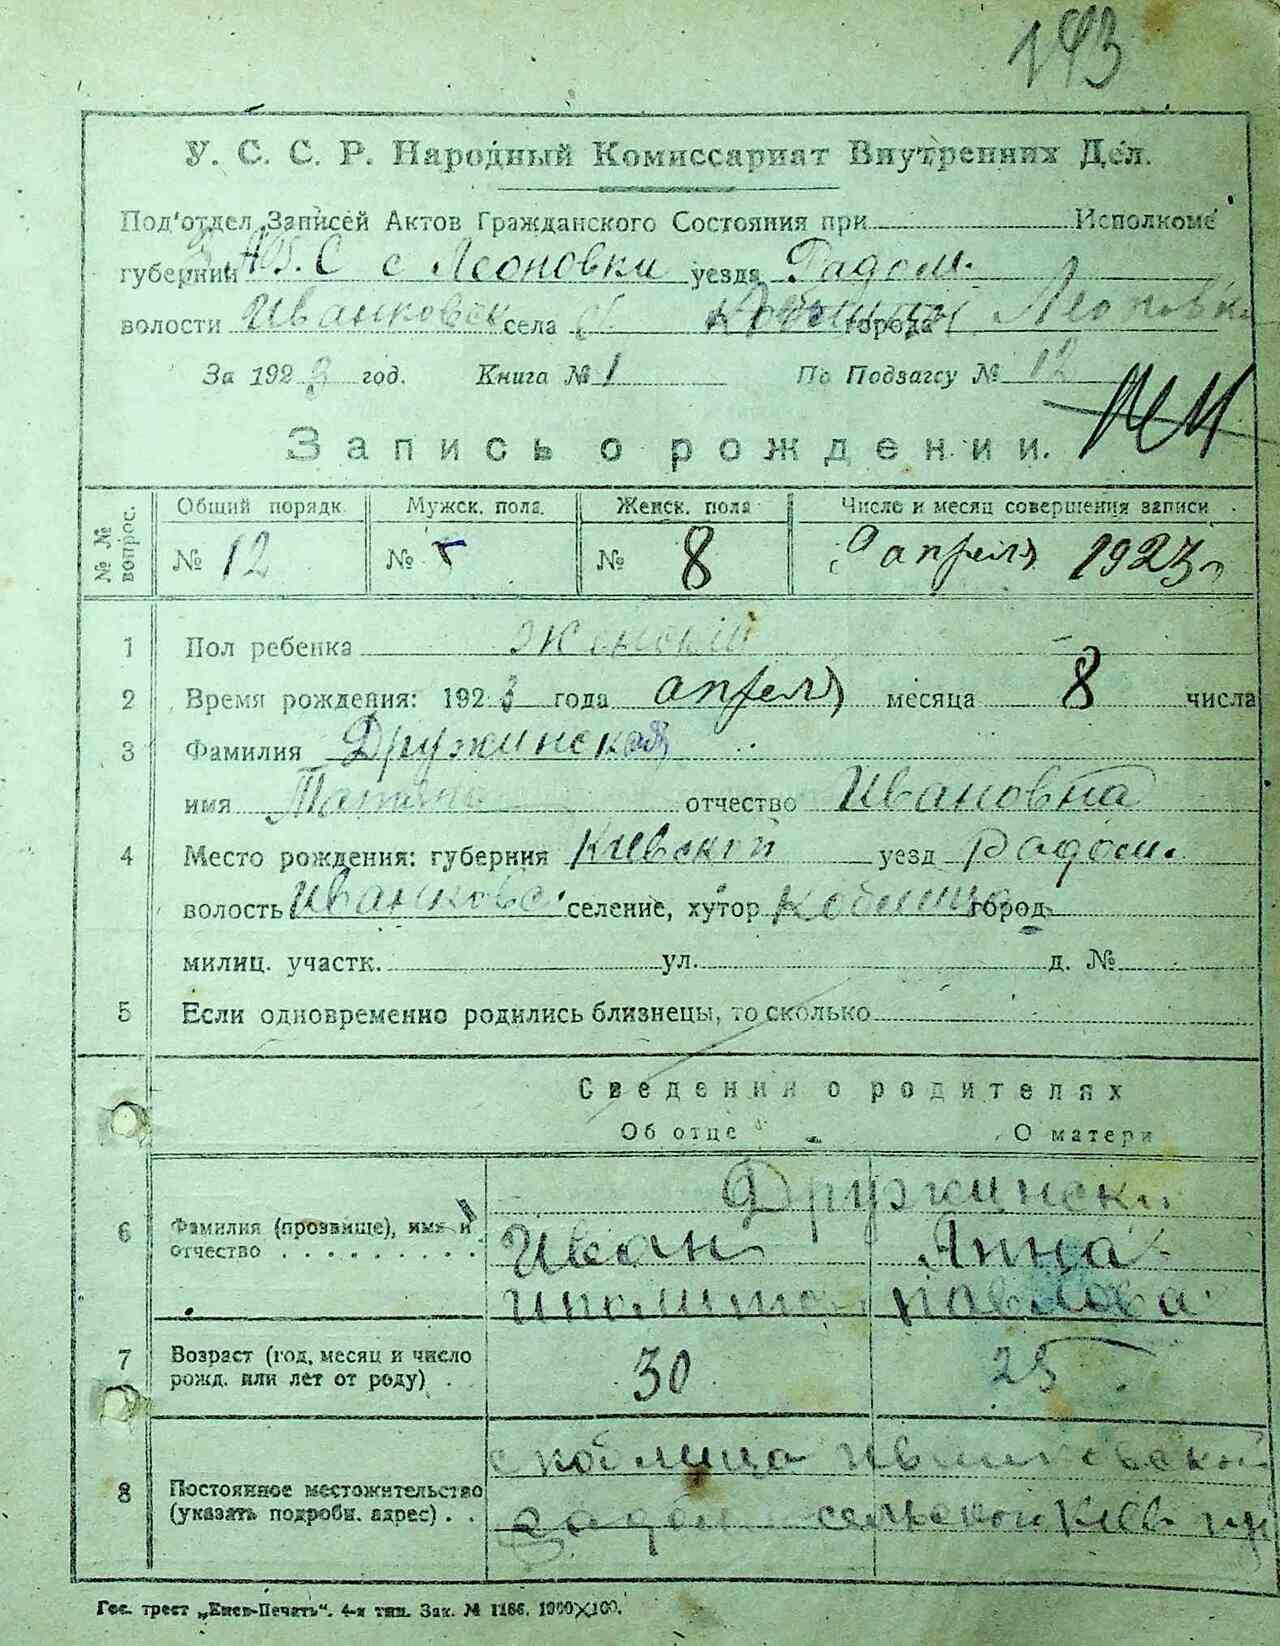 193
У. С. С. Р. Народный Комиссариат Внутренних Дел.
Под'отдел Записей Актов Гражданского Состояния при Исполкоме
губернии с Леоновки уезда Радом.
волости Иванковск села города Леоновка
За 1923 год. Книга № 1 По Подзагсу № 12
Запись о рождении.
№№ вопрос. Общий порядк. Мужск. пола. Женск. пола Число и месяц совершения записи
№ 12 № № 8 апреля 1923
1 Пол ребенка женский
2 Время рождения: 1923 года апреля месяца 8 числа
3 Фамилия Дружинская
имя Татяна отчество Ивановна
4 Место рождения: губерния Киевский уезд Радом.
волость Иванковс. селение, хутор Коблица город
милиц. участк. ул. д. №
5 Если одновременно родились близнецы, то сколько
Сведения о родителях
Об отце О матери
6 Фамилия (прозвище), имя и отчество Дружински
Иван Анна
Иполитов Павлова
7 Возраст (год, месяц и число рожд. или лет от роду) 30 25
8 Постоянное местожительство (указать подробн. адрес) с коблица Иванковской
сельской Киев
Гос. трест „Киев-Печать". 4-я тип. Зак. № 1186. 1000×100.